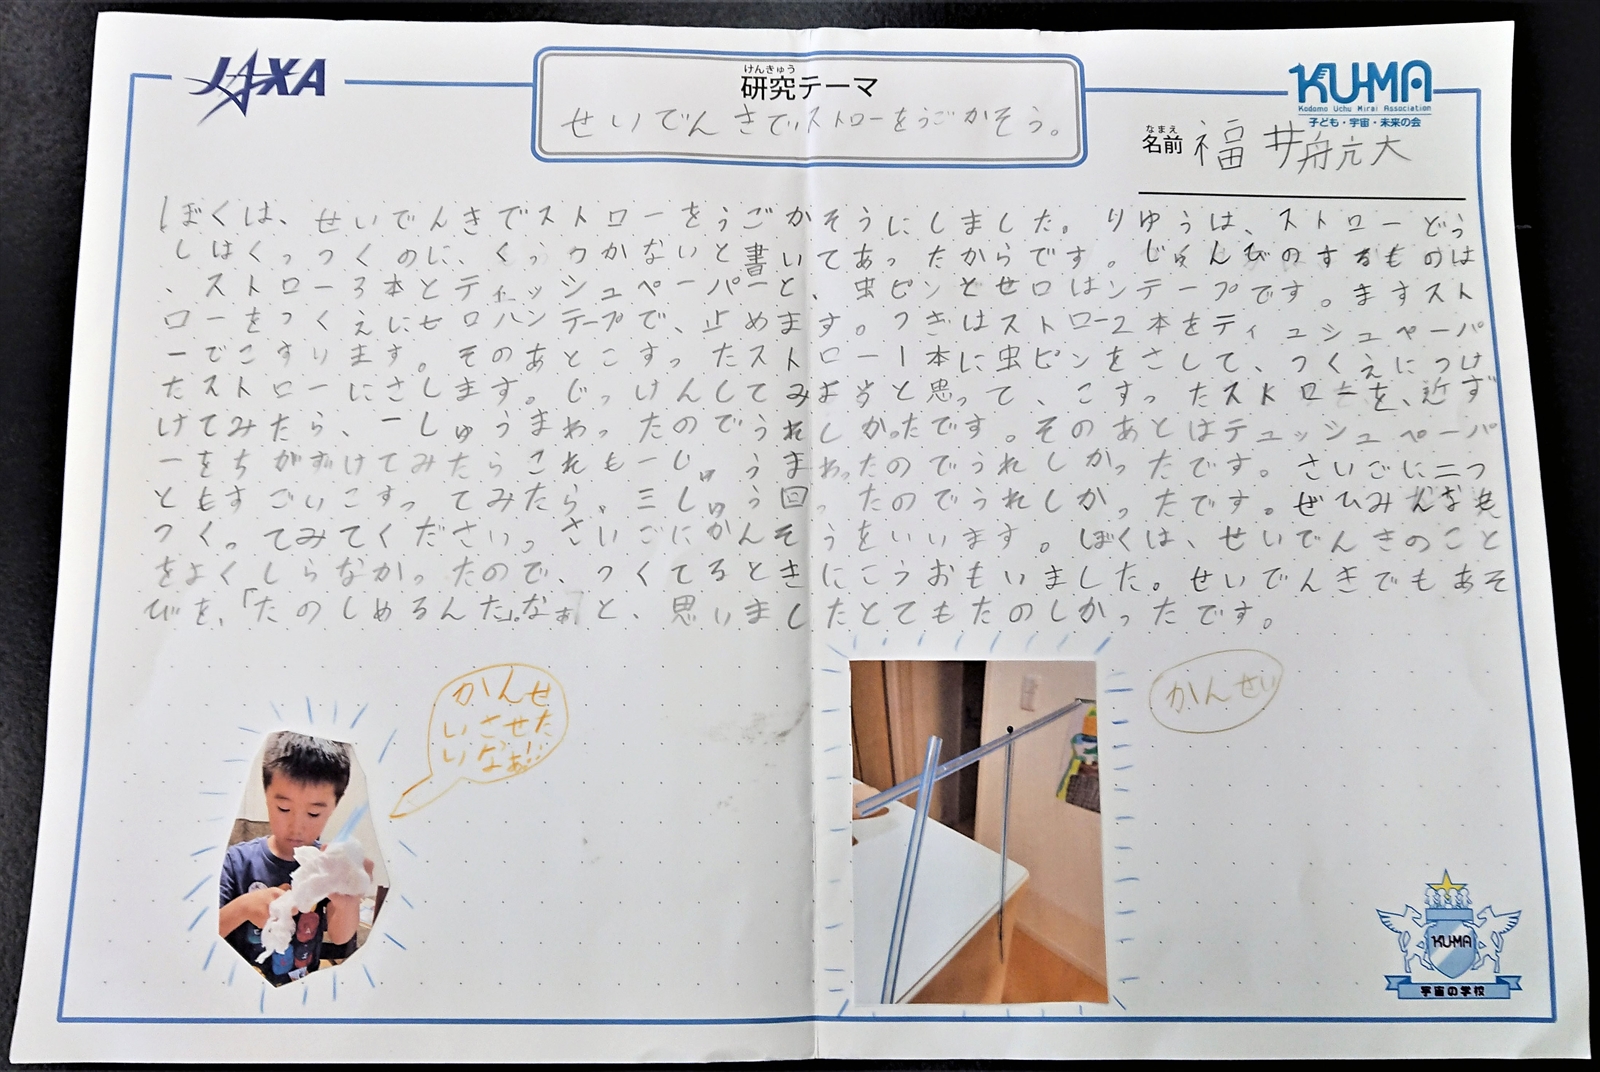 JAXA
けんきゅう
研究テーマ
せいでんきでストローをうごかそう。
KU-MA
Kodomo Uchu Mirai Association
子ども・宇宙・未来の会
なまえ
名前 福井航大
ぼくは、せいでんきでストローをうごかそうにしました。りゆうは、ストローどう
しはくっつくのに、くっつかないと書いてあったからです。じゅんびのするものは
、ストロー3本とティッシュペーパーと、虫ピンとセロはンテープです。ますスト
ローをつくえにセロハンテープで、止めます。つぎはストロー2本をティュシュペーパ
ーでこすります。そのあとこすったストロー1本に虫ピンをさして、つくえにつけ
たストローにさします。じっけんしてみようと思って、こすったストローを、近ず
けてみたら、一しゅうまわったのでうれしかったです。そのあとはテュッシュペーパ
ーをちかずけてみたらこれも一しゅうまわったのでうれしかったです。さいごに二つ
ともすごいこすってみたら、三しゅう回ったのでうれしかったです。ぜひみんなも
つくってみてください。さいごにかんそうをいいます。ぼくは、せいでんきのこと
をよくしらなかったので、つくてるときにこうおもいました。せいでんきでもあそ
びを、「たのしめるんだ」。なぁと、思いましたとてもたのしかったです。
かんせ
いさせた
いなぁ!!
かんせい
KU-MA
宇宙の学校